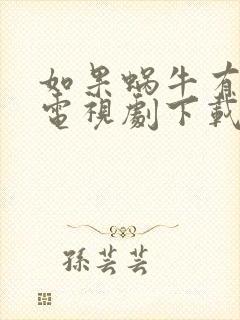 如果蝸牛有
電視劇下載
孫芸芸